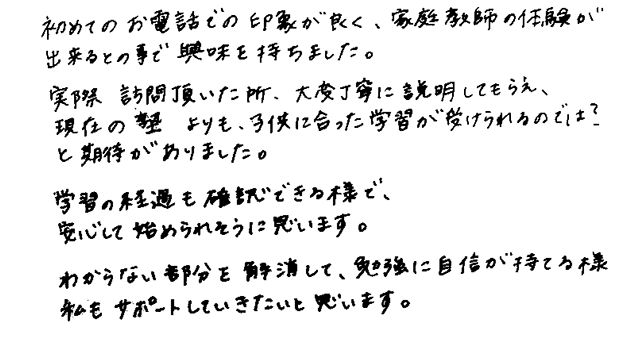 初めてのお電話での印象が良く、家庭教師の体験が
出来るとの事で興味を持ちました。
実際 訪問頂いた所、大変丁寧に説明してもらえ、
現在の塾 よりも、子供に合った学習が受けられるのでは?
と期待がありました。
学習の経過も確認できる様で、
安心して始められそうに思います。
わからない部分を解消して、勉強に自信が持てる様
私もサポートしていきたいと思います。